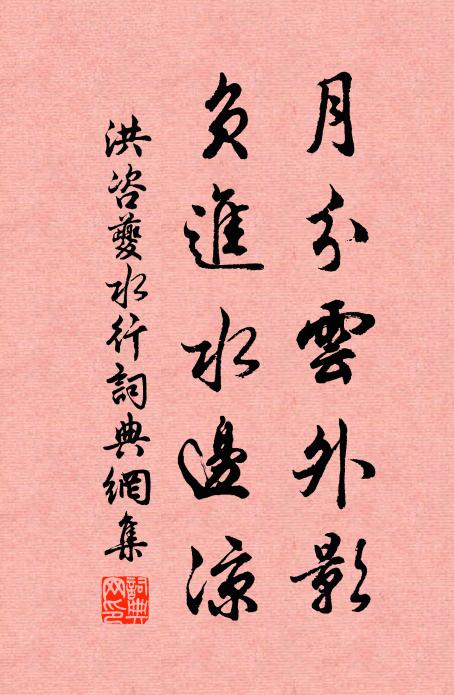 月分雲外影
負進水邊涼
洪咨夔水行詞典網集
詞典
网印